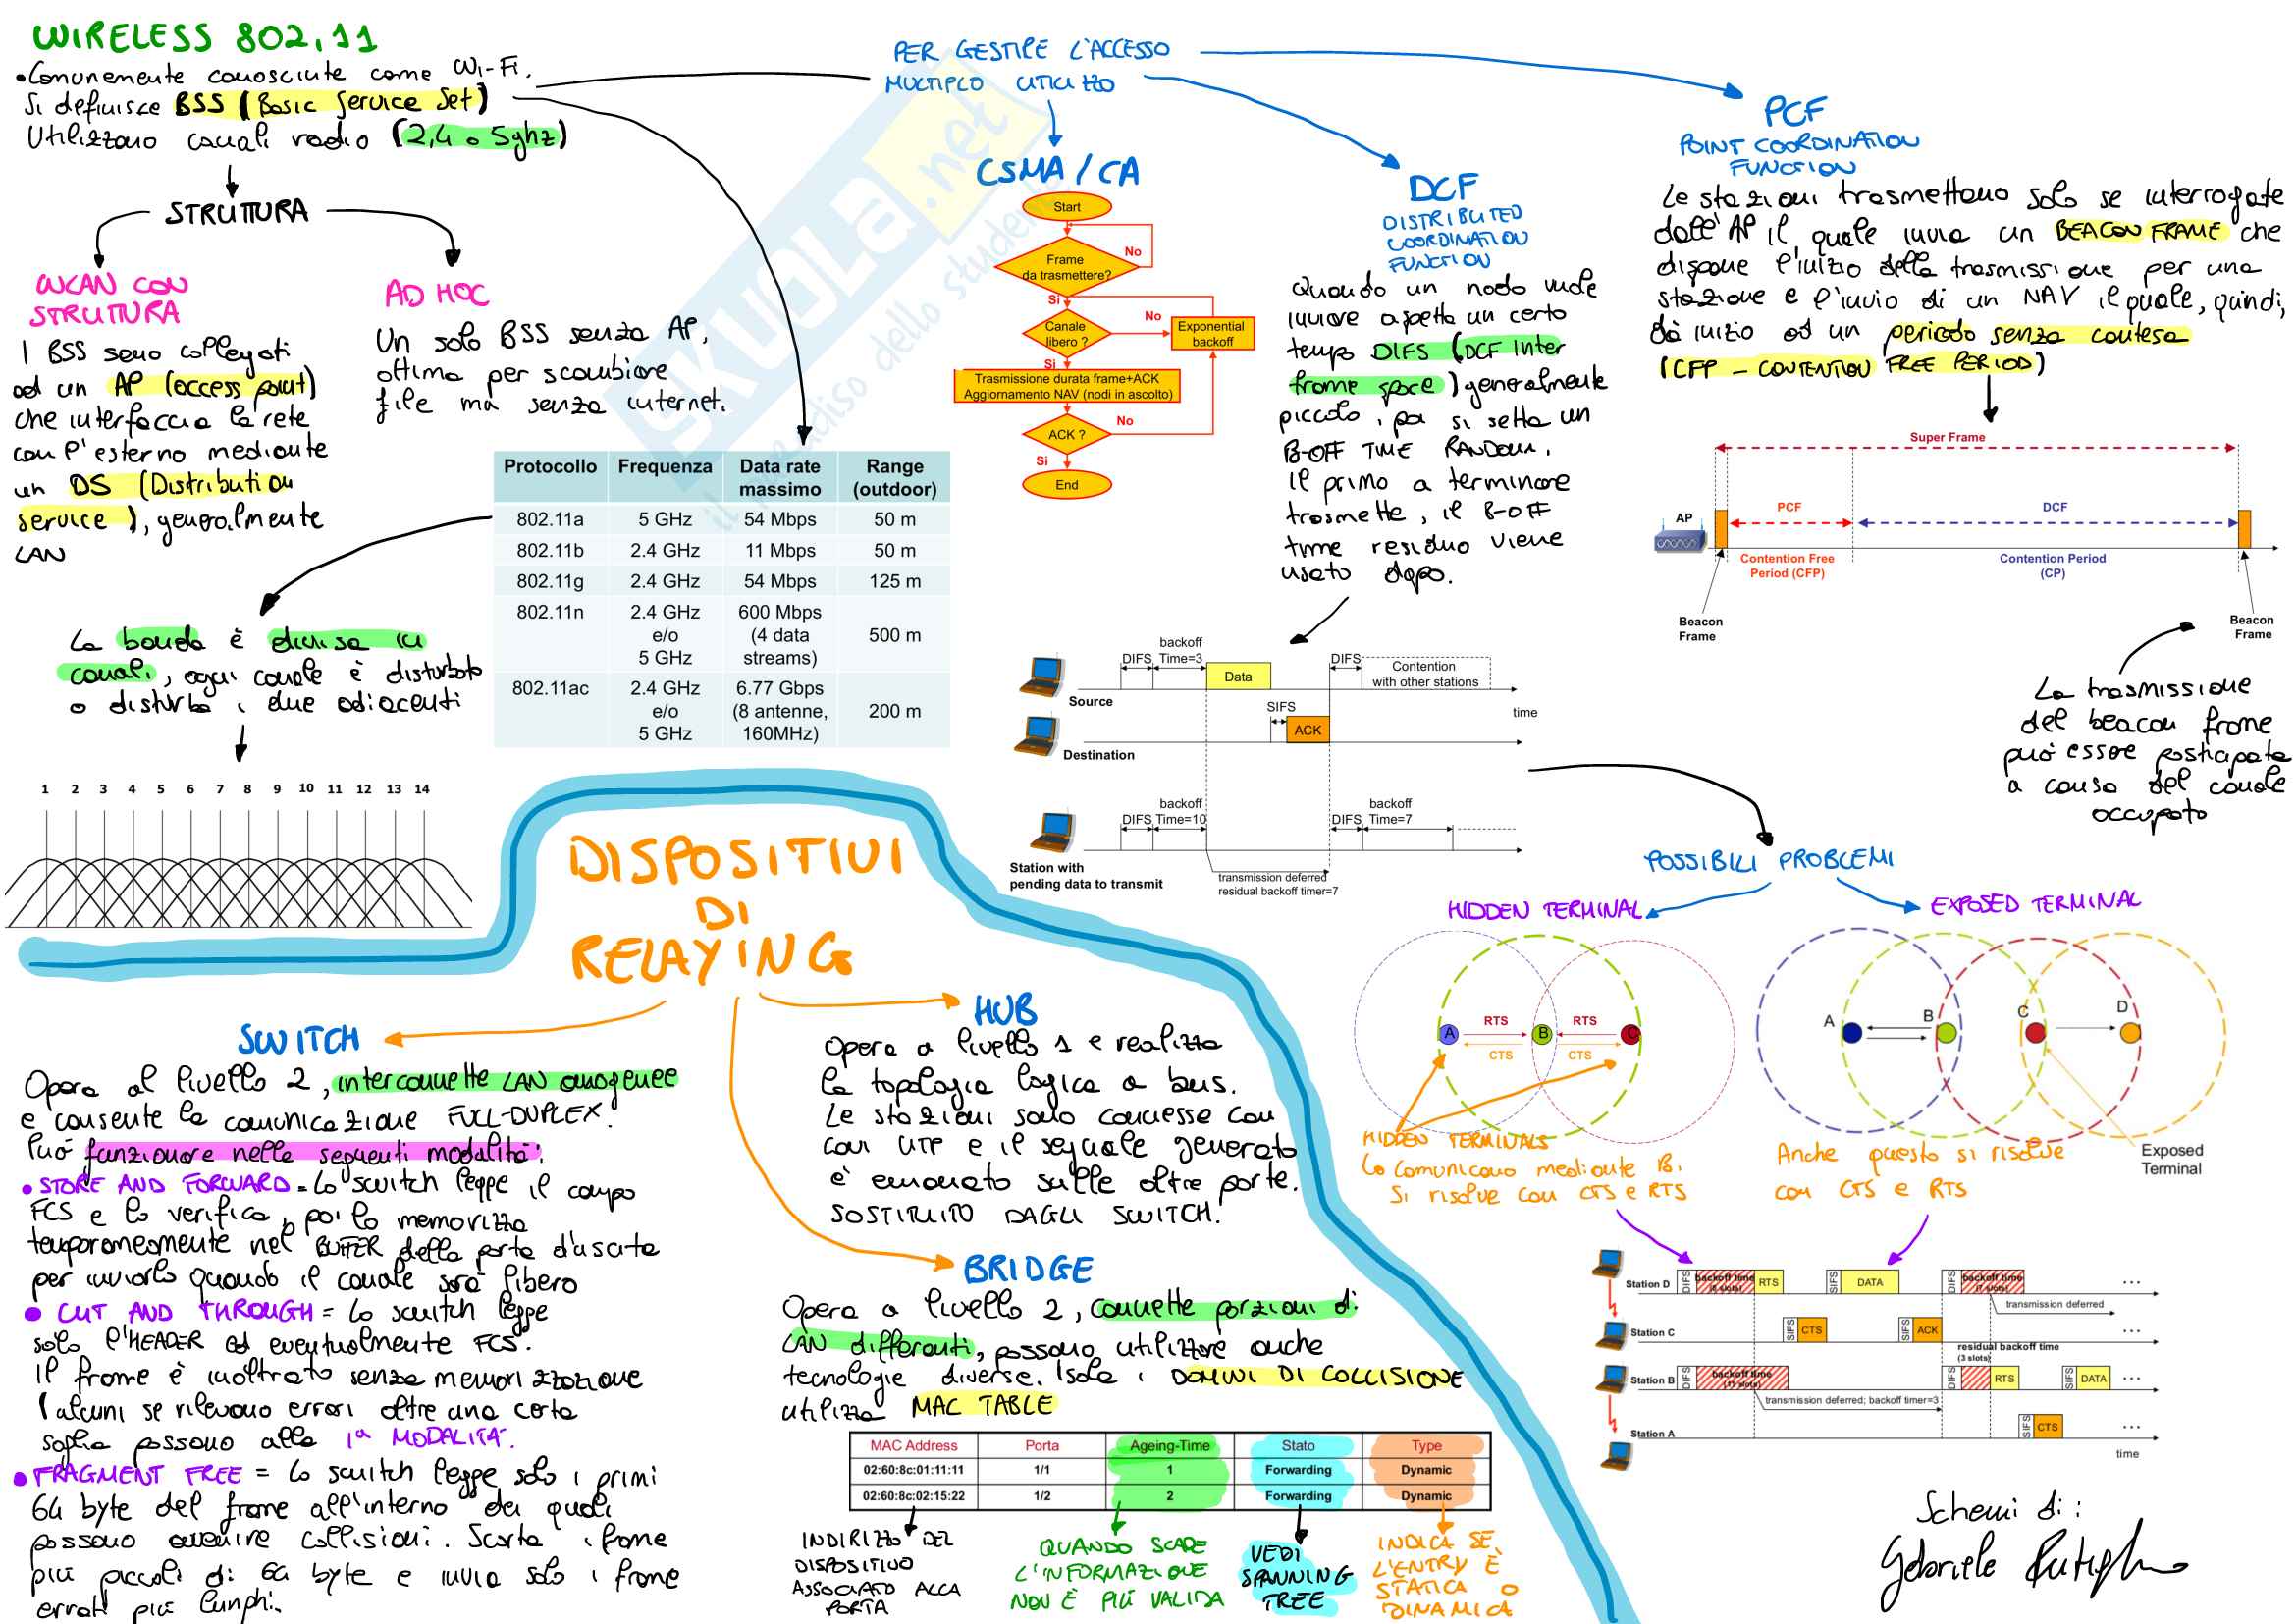 WIRELESS 802.11
• Comunemente conosciute come Wi-Fi.
Si definisce BSS (Basic Service Set)
Utilizzano canali radio (2,4 o 5ghz)
STRUTTURA
WLAN CON
STRUTTURA
I BSS sono collegati
ad un AP (access point)
che interfaccia la rete
con l'esterno mediante
un DS (Distribution
service), generalmente
LAN
AD HOC
Un solo BSS senza AP,
ottima per scambiare
file ma senza internet.
Protocollo Frequenza Data rate massimo Range (outdoor)
802.11a 5 GHz 54 Mbps 50 m
802.11b 2.4 GHz 11 Mbps 50 m
802.11g 2.4 GHz 54 Mbps 125 m
802.11n 2.4 GHz e/o 5 GHz 600 Mbps (4 data streams) 500 m
802.11ac 2.4 GHz e/o 5 GHz 6.77 Gbps (8 antenne, 160MHz) 200 m
La banda è divisa in
canali, ogni canale è disturbato
o disturba i due adiacenti
1 2 3 4 5 6 7 8 9 10 11 12 13 14
PER GESTIRE L'ACCESSO
MULTIPLO UTILIZZO
CSMA / CA
Start
Frame
da trasmettere?
No
Si
Canale
libero ?
No
Exponential
backoff
Si
Trasmissione durata frame+ACK
Aggiornamento NAV (nodi in ascolto)
ACK ?
No
Si
End
DCF
DISTRIBUTED
COORDINATION
FUNCTION
Quando un nodo vuole
inviare aspetta un certo
tempo DIFS (DCF Inter
frame space) generalmente
piccolo, poi si setta un
B-OFF TIME RANDOM.
Il primo a terminare
trasmette, il B-OFF
time residuo viene
usato dopo.
DIFS backoff Time=3 Data DIFS Contention with other stations
Source
time
SIFS ACK
Destination
DIFS backoff Time=10 DIFS backoff Time=7
Station with
pending data to transmit
transmission deferred
residual backoff timer=7
PCF
POINT COORDINATION
FUNCTION
Le stazioni trasmettono solo se interrogate
dall'AP il quale invia un BEACON FRAME che
dispone l'inizio della trasmissione per una
stazione e l'invio di un NAV il quale, quindi,
dà inizio ad un periodo senza contesa
(CFP - CONTENTION FREE PERIOD)
Super Frame
AP
PCF DCF
Contention Free
Period (CFP)
Contention Period
(CP)
Beacon
Frame
Beacon
Frame
La trasmissione
del beacon frame
può essere posticipata
a causa del canale
occupato
POSSIBILI PROBLEMI
HIDDEN TERMINAL
A RTS B RTS C
CTS CTS
HIDDEN TERMINALS
Lo comunicano mediante B.
Si risolve con CTS e RTS
EXPOSED TERMINAL
A B C D
Exposed
Terminal
Anche questo si risolve
con CTS e RTS
Station D DIFS backoff time (8 slots) RTS SIFS DATA DIFS backoff time (7 slots) ...
transmission deferred
Station C SIFS CTS SIFS ACK ...
residual backoff time
(3 slots)
Station B DIFS backoff time (11 slots) DIFS RTS SIFS DATA ...
transmission deferred; backoff timer=3
Station A SIFS CTS ...
time
DISPOSITIVI
DI
RELAYING
SWITCH
Opera al livello 2, interconnette LAN omogenee
e consente la comunicazione FULL-DUPLEX.
Può funzionare nelle seguenti modalità:
• STORE AND FORWARD = Lo switch legge il campo
FCS e lo verifica, poi lo memorizza
temporaneamente nel BUFFER della porta d'uscita
per inviarlo quando il canale sarà libero
• CUT AND THROUGH = Lo switch legge
solo l'HEADER ed eventualmente FCS.
Il frame è inoltrato senza memorizzazione
(alcuni se rilevano errori oltre una certa
soglia passano alla 1ª MODALITÀ.
• FRAGMENT FREE = Lo switch legge solo i primi
64 byte del frame all'interno dei quali
possono avvenire collisioni. Scarta i frame
più piccoli di 64 byte e invia solo i frame
errati più lunghi.
HUB
Opera a livello 1 e realizza
la topologia logica a bus.
Le stazioni sono connesse con
cavi UTP e il segnale generato
è emanato sulle altre porte.
SOSTITUITO DAGLI SWITCH.
BRIDGE
Opera a livello 2, connette porzioni di
LAN differenti, possono utilizzare anche
tecnologie diverse. Isola i DOMINI DI COLLISIONE
utilizza MAC TABLE
MAC Address Porta Ageing-Time Stato Type
02:60:8c:01:11:11 1/1 1 Forwarding Dynamic
02:60:8c:02:15:22 1/2 2 Forwarding Dynamic
INDIRIZZO DEL
DISPOSITIVO
ASSOCIATO ALLA
PORTA
QUANDO SCADE
L'INFORMAZIONE
NON È PIÙ VALIDA
VEDI
SPANNING
TREE
INDICA SE
L'ENTRY È
STATICA O
DINAMICA
Schemi di:
Gabriele
SKUOLA.net
il paradiso dello studente